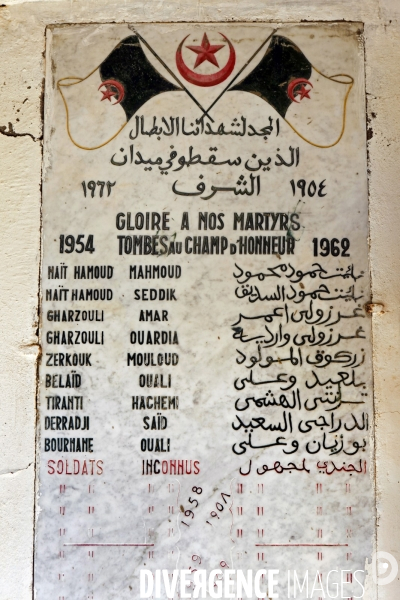 المجد لشهدائنا الابطال
الذين سقطو في ميدان
١٩٥٤ الشرف ١٩٦٢
GLOIRE A NOS MARTYRS
1954 TOMBES AU CHAMP D'HONNEUR 1962
NAÏT HAMOUD MAHMOUD نايت حمود محمود
NAÏT HAMOUD SEDDIK نايت حمود السديق
GHARZOULI AMAR غرزولي اعمر
GHARZOULI OUARDIA غرزولي واردية
ZERKOUK MOULOUD زركوق المولود
BELAÏD OUALI بلعيد وعلي
TIRANTI HACHEMI تيرنتي الهشمي
DERRADJI SAÏD الدراجي السعيد
BOURHANE OUALI بوزيان وعلي
SOLDATS INCONNUS الجندي لمجهول
1958
١٩٥٨
DIVERGENCE IMAGES